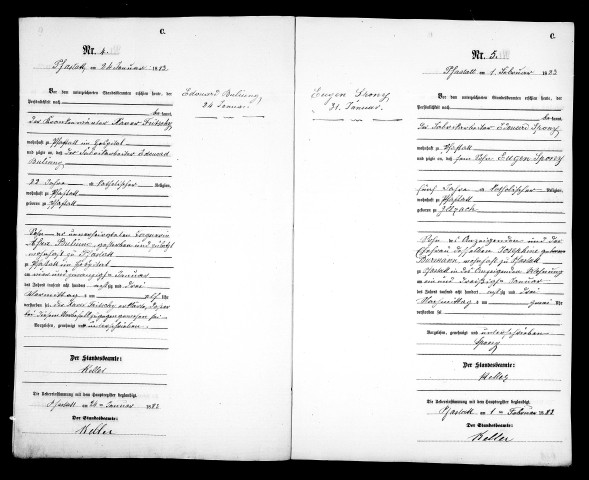 C.
Nr. 4.
Pfastatt am 24 Januar 1883
Vor dem unterzeichneten Standesbeamten erschien heute, der
Persönlichkeit nach
be kannt,
der Krankenwärter Xaver Fritschy
wohnhaft zu Pfastatt im Hospital
und zeigte an, daß der Fabrikarbeiter Edouard
22 Jahre katholischer Religion,
wohnhaft zu Pfastatt
geboren zu Pfastatt
Sohn des
gestorben und
wohnhaft zu Pfastatt
zu Pfastatt im Hospital
am Januar
des Jahres tausend acht hundert achtzig und drei
Vormittags um elf Uhr
verstorben sei.
Vorgelesen, genehmigt und unterschrieben
Der Standesbeamte:
Keller
Die Uebereinstimmung mit dem Hauptregister beglaubigt.
Pfastatt am 24 Januar 1883
Der Standesbeamte:
Keller
Edouard
24 Januar
Eugen Spony
31. Januar.
C.
Nr. 5.
Pfastatt am 1 Februar 1883
Vor dem unterzeichneten Standesbeamten erschien heute, der
Persönlichkeit nach
be kannt,
der Fabrikarbeiter Eduard Spony
wohnhaft zu Pfastatt
und zeigte an, daß sein Sohn Eugen Spony
fünf Jahre katholischer Religion,
wohnhaft zu Pfastatt
geboren zu Illzach
Sohn des Anzeigenden und der
Ehefrau desselben Josephine geborene
wohnhaft zu Pfastatt
zu Pfastatt in des Anzeigenden Wohnung
am ein und dreißigsten Januar
des Jahres tausend acht hundert achtzig und drei
Nachmittags um zwei Uhr
verstorben sei.
Vorgelesen, genehmigt und unterschrieben
Spony
Der Standesbeamte:
Keller
Die Uebereinstimmung mit dem Hauptregister beglaubigt.
Pfastatt am 1 Februar 1883
Der Standesbeamte:
Keller